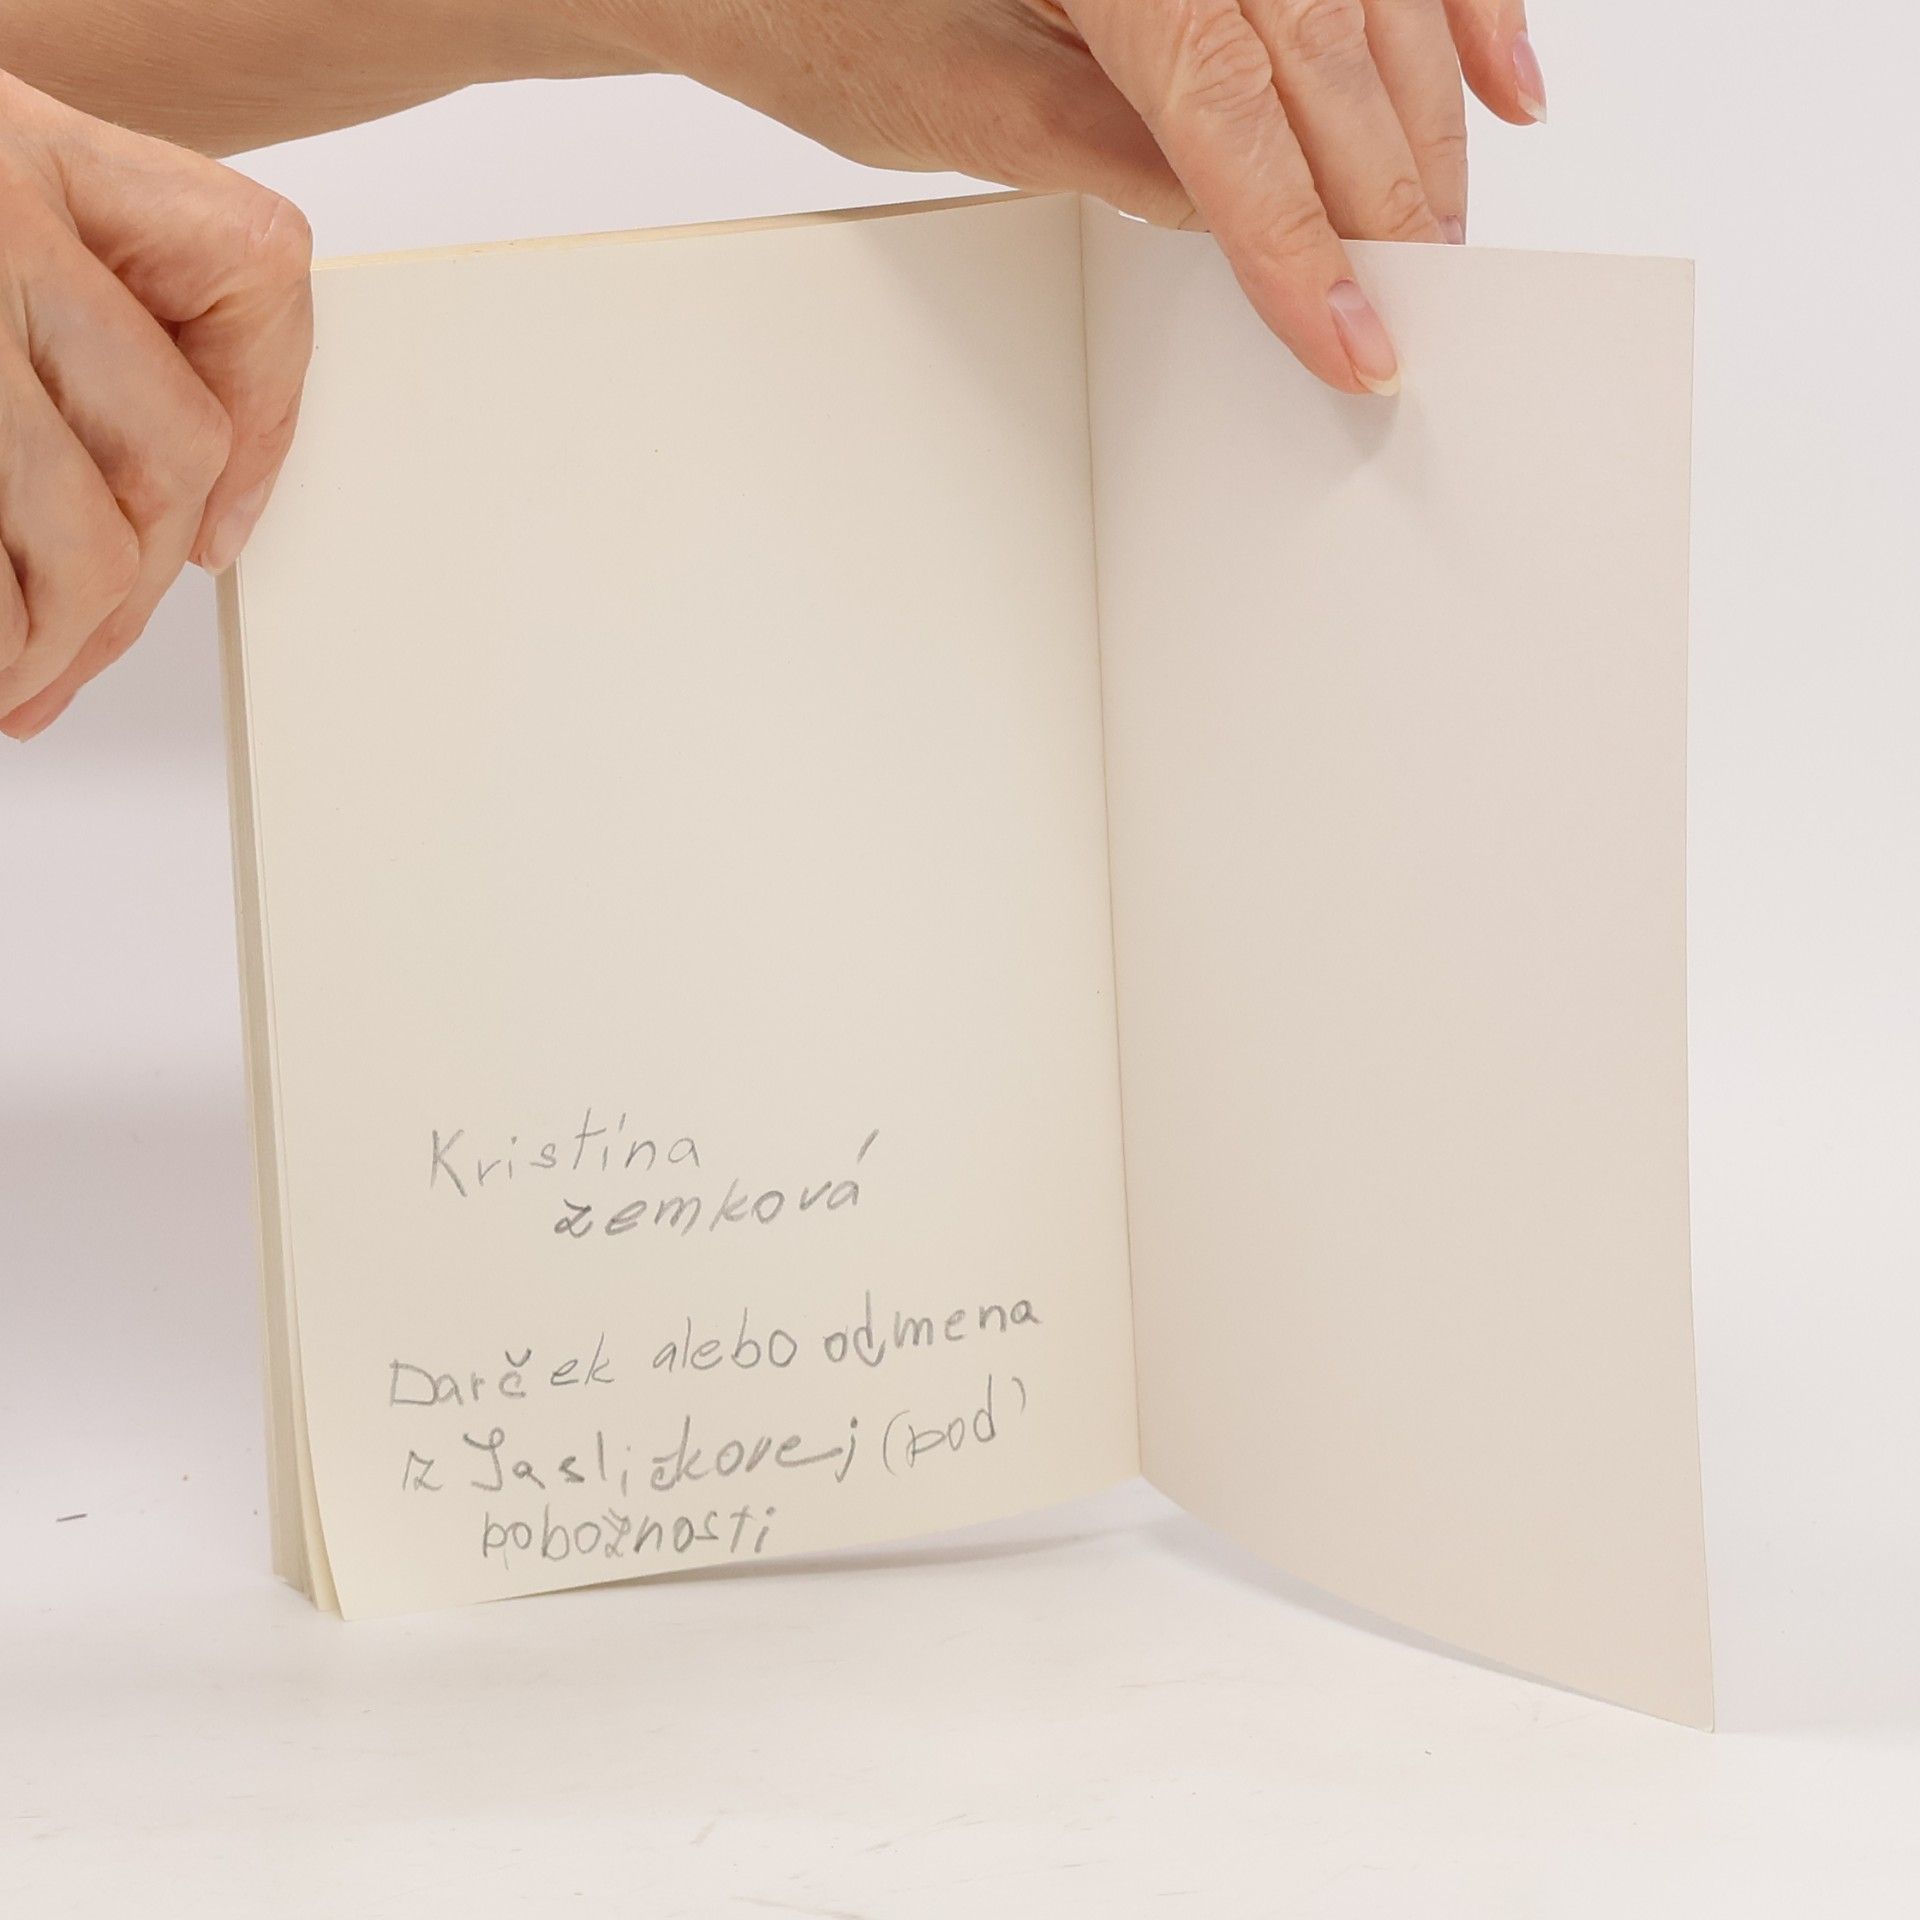 Kristína
zemková
Darček alebo odmena
z Jasličkovej (pod)
pobožnosti